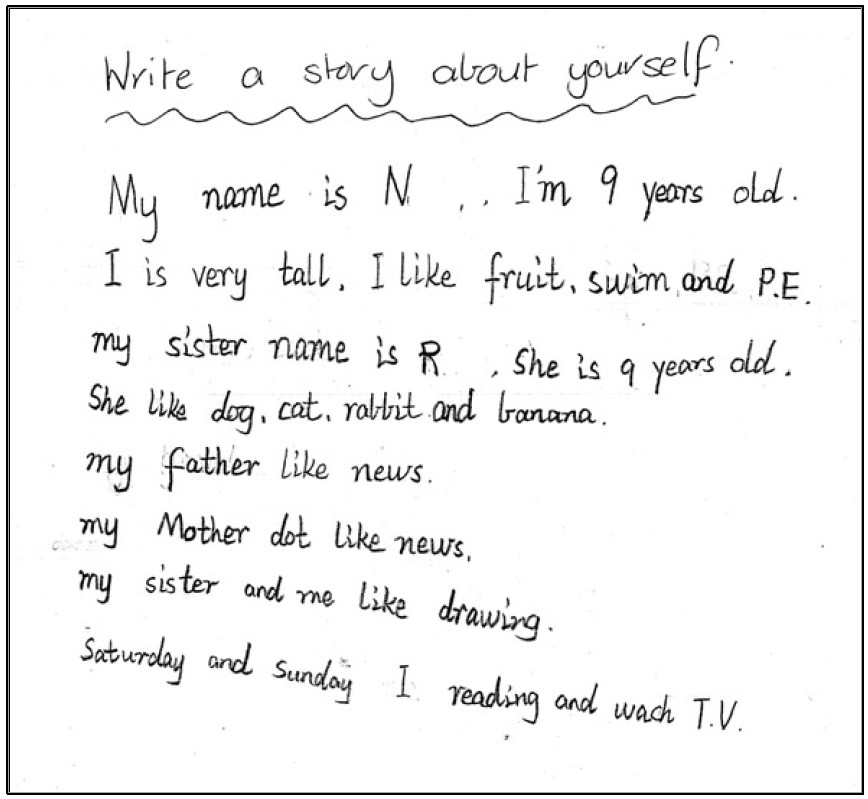 Write a story about yourself.
My name is N . . I'm 9 years old.
I is very tall. I like fruit, swim and P.E.
my sister name is R . She is 9 years old.
She like dog, cat, rabbit and banana.
my father like news.
my Mother dot like news.
my sister and me like drawing.
Saturday and Sunday I reading and wach T.V.